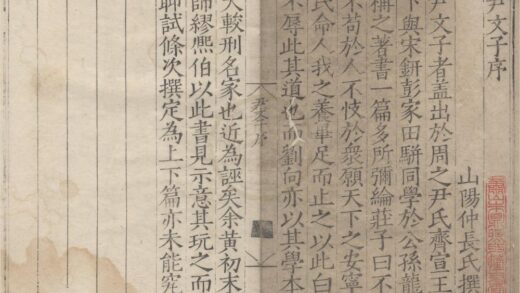 尹文子序
山陽仲長氏撰
尹文子者蓋出於周之尹氏齊宣王
下與宋鈃彭家田駢同學於公孫龍
稱之著書一篇多所彌綸莊子曰不
不苟於人不忮於衆願天下之安寧
民命人我之養畢足而止之以此白
不辱此其道也而劉向亦以其學本
大較刑名家也近為誣矣余黃初末
師繆熙伯以此書見示意其玩之而
聊試條次撰定為上下篇亦未能究